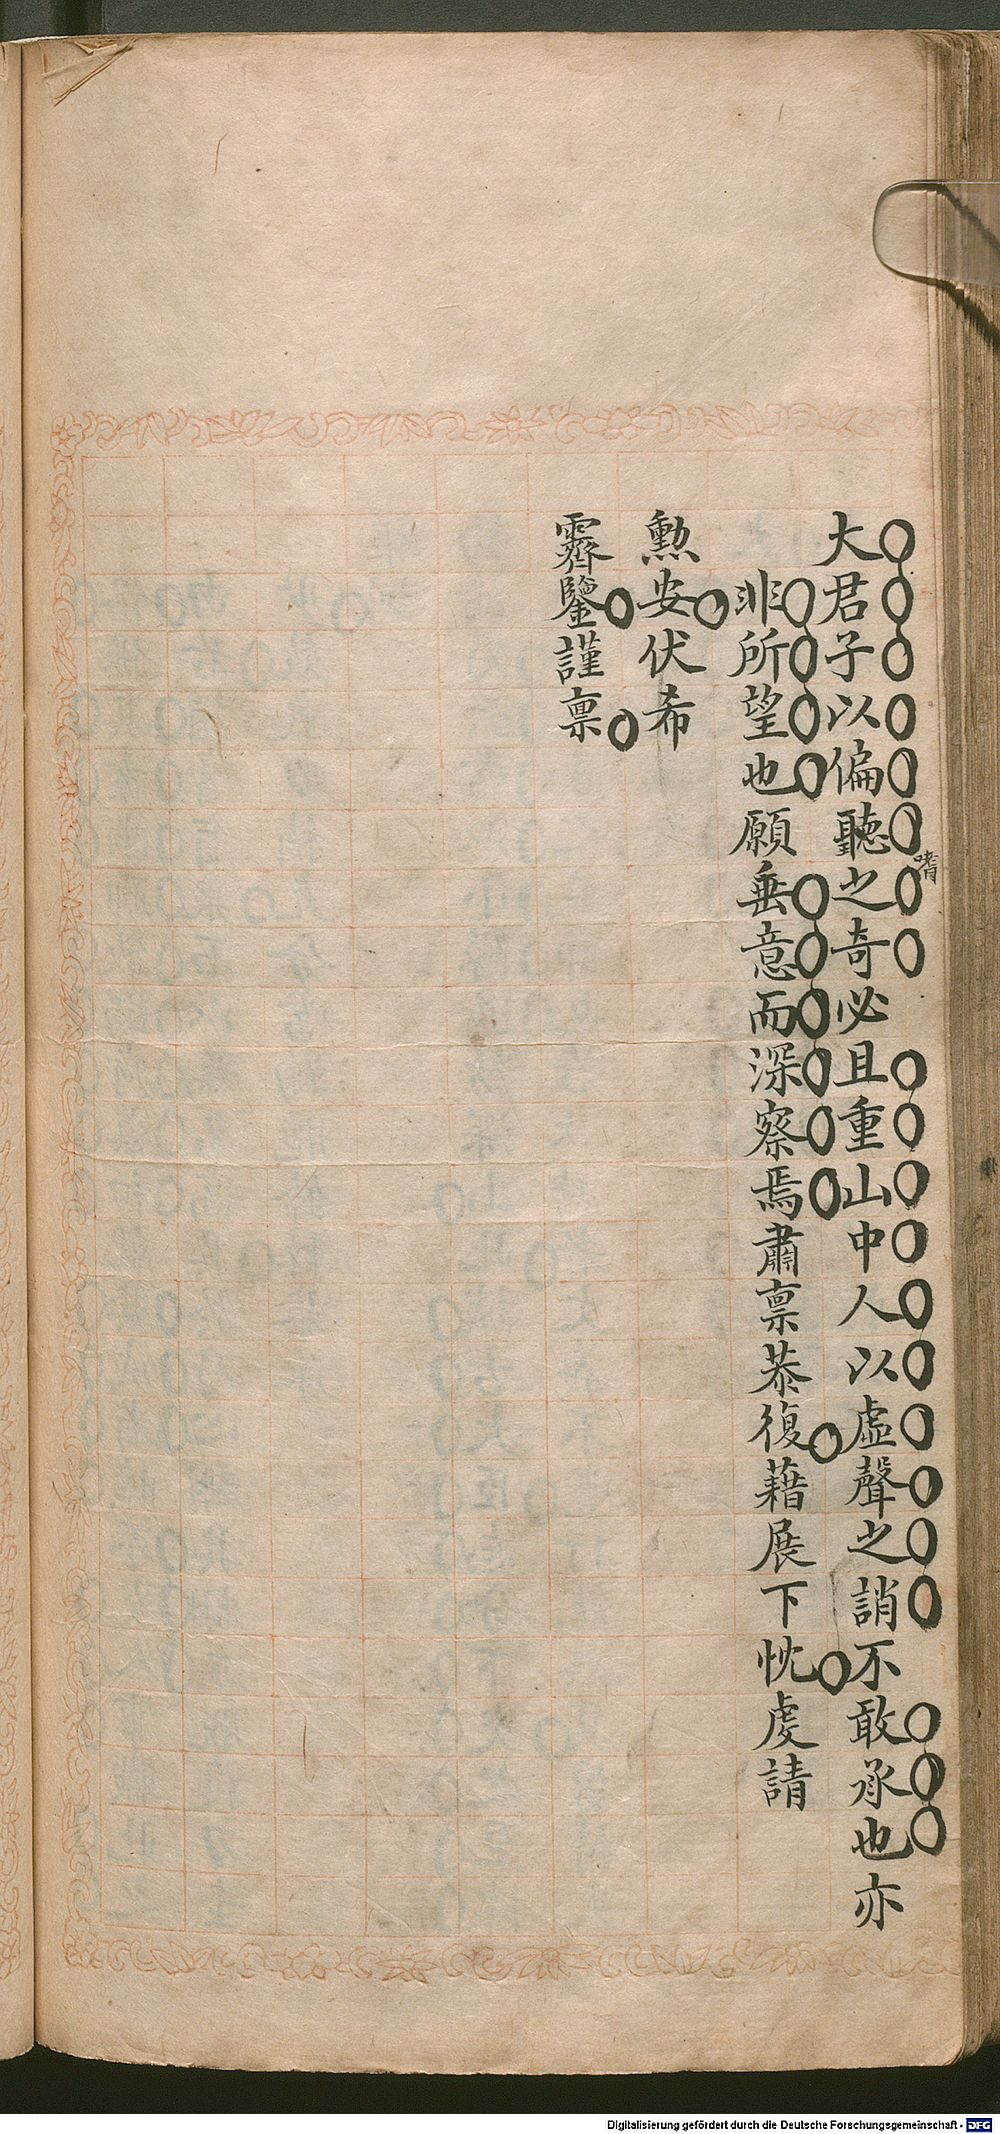 大君子以偏聽之奇必且重山中人以虛聲之誚不敢承也亦
嗜
非所望也願垂意而深察焉肅稟恭復藉展下忱虔請
勲安伏希
霽鑒謹稟
Digitalisierung gefördert durch die Deutsche Forschungsgemeinschaft - DFG